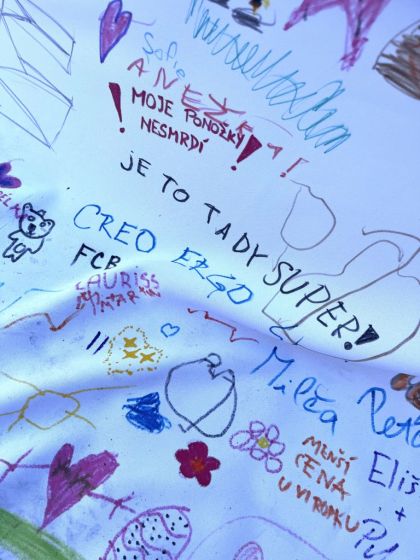 Sofie
ANEŽKA!
! MOJE PONOŽKY
NESMRDÍ !
JE TO TADY SUPER!
CREO ERGO
FCB
LAURISS
Milča
MENŠÍ
CENA
U VIROKU
Eliš
+